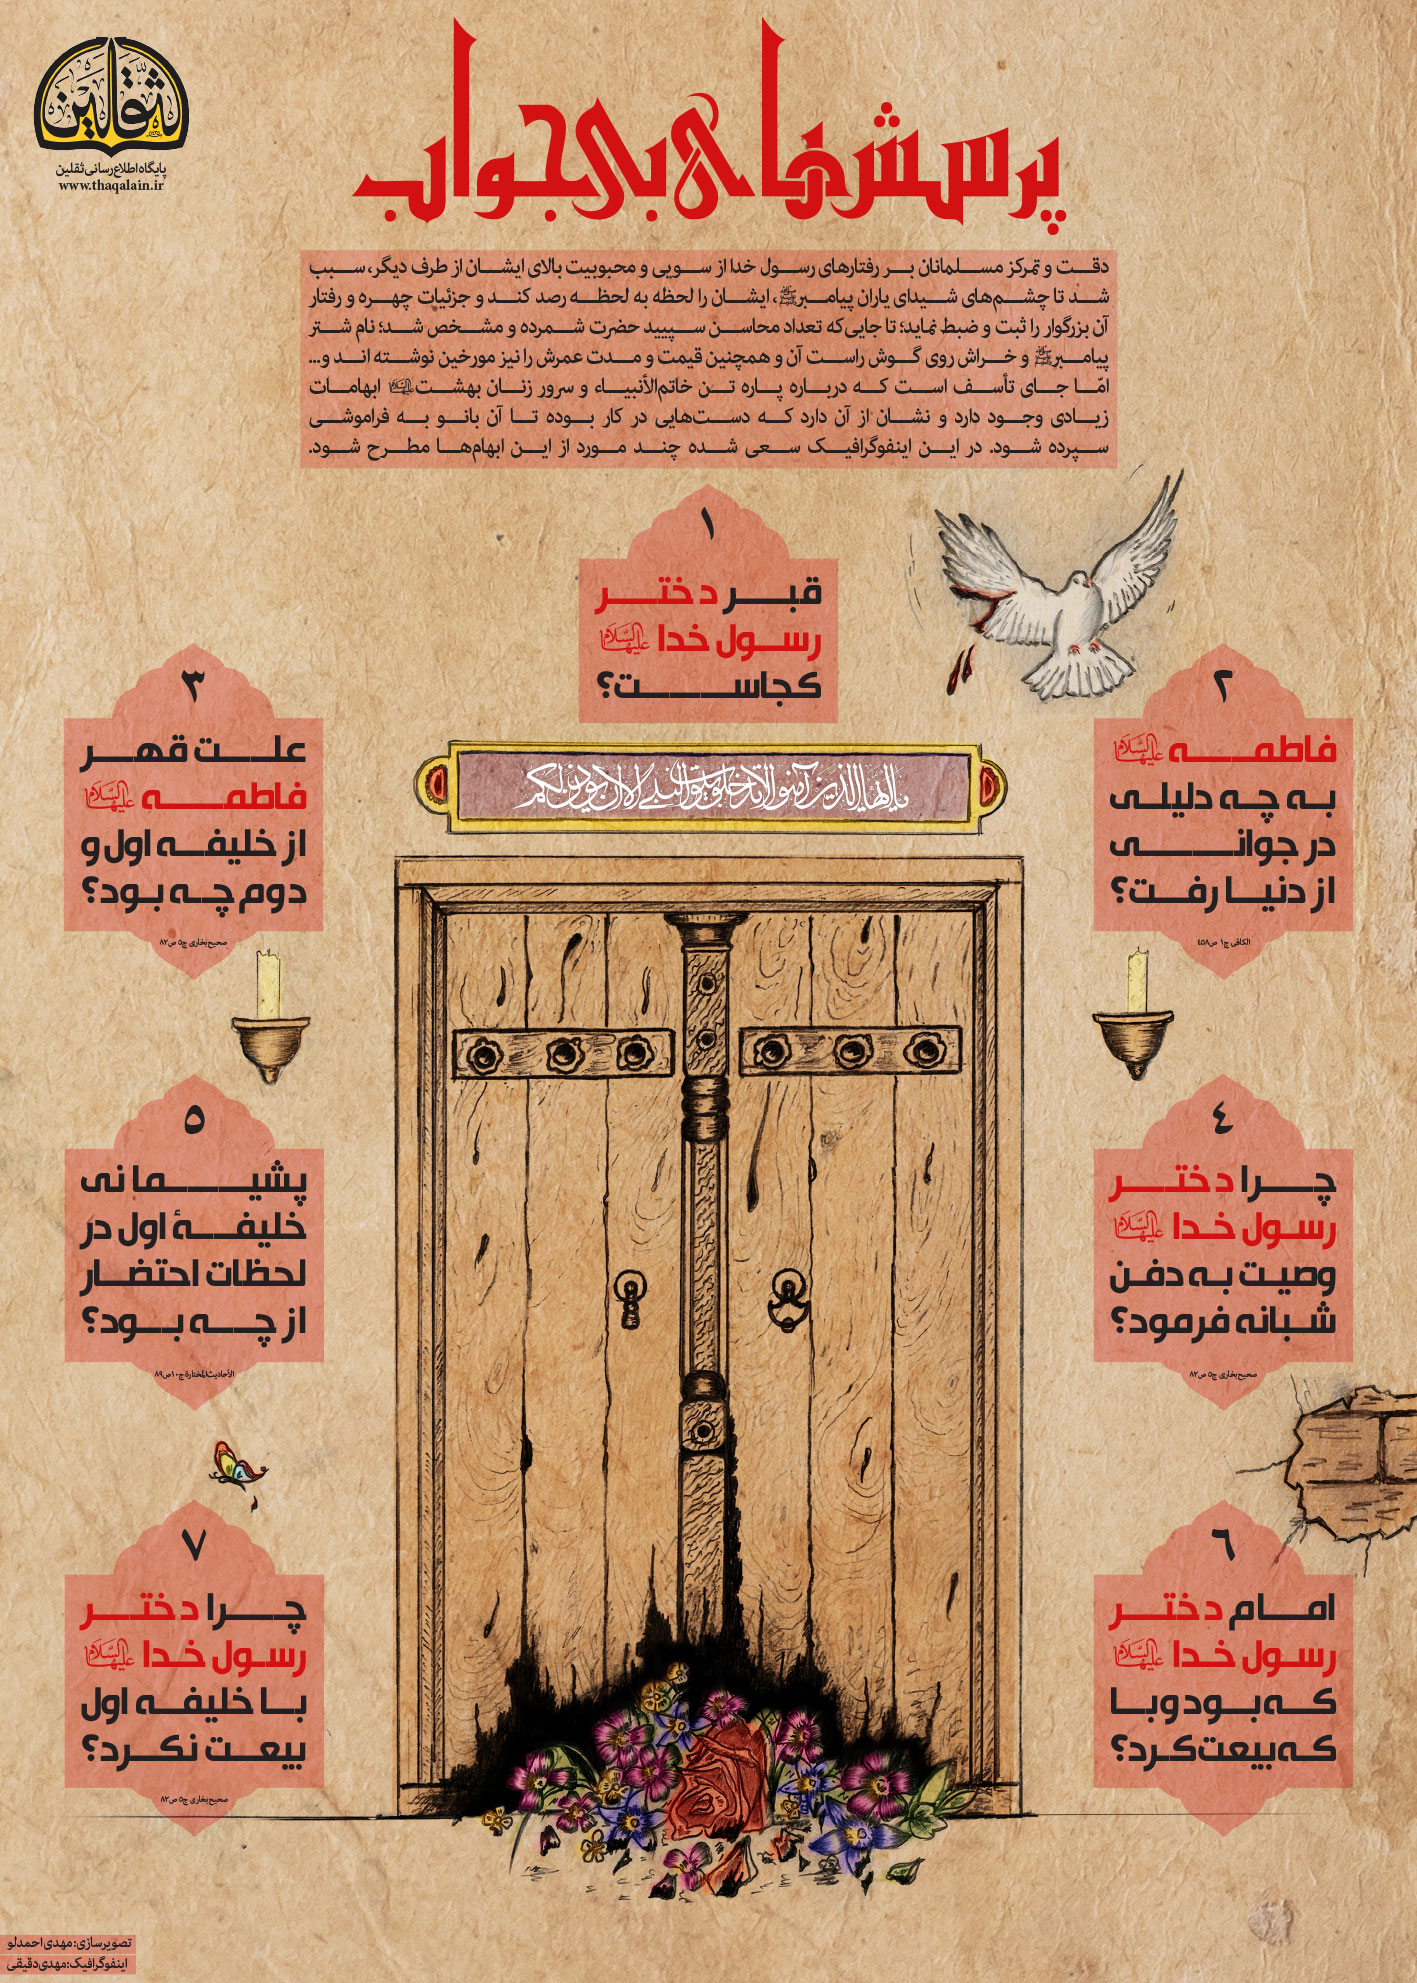 پرسش‌های بی‌جواب
ثقلین
پایگاه اطلاع رسانی ثقلین
www.thaqalain.ir
دقت و تمرکز مسلمانان بر رفتارهای رسول خدا از سویی و محبوبیت بالای ایشان از طرف دیگر، سبب
شد تا چشم‌های شیدای یاران پیامبر ﷺ، ایشان را لحظه به لحظه رصد کند و جزئیات چهره و رفتار
آن بزرگوار را ثبت و ضبط نماید؛ تا جایی‌که تعداد محاسن سپیید حضرت شمرده و مشخص شد؛ نام شتر
پیامبر ﷺ و خراش روی گوش راست آن و همچنین قیمت و مدت عمرش را نیز مورخین نوشته اند و...
امّا جای تأسف است که درباره پاره تن خاتم‌الأنبیاء و سرور زنان بهشت علیهاالسلام ابهامات
زیادی وجود دارد و نشان از آن دارد که دست‌هایی در کار بوده تا آن بانو به فراموشی
سپرده شود. در این اینفوگرافیک سعی شده چند مورد از این ابهام‌ها مطرح شود.
۱
قبر دختر
رسول خدا علیهاالسّلام
کجاست؟
۲
فاطمه علیهاالسّلام
به چه دلیلی
در جوانی
از دنیا رفت؟
الکافی ج۱ ص۴۵۸
۳
علت قهر
فاطمه علیهاالسّلام
از خلیفه اول و
دوم چه بود؟
صحیح بخاری ج۵ ص۸۲
یا ایها الذین آمنوا لا تدخلوا بیوت النبی الا ان یوذن لکم
٤
چرا دختر
رسول خدا علیهاالسّلام
وصیت به دفن
شبانه فرمود؟
صحیح بخاری ج۵ ص۸۲
۵
پشیمانی
خلیفۀ اول در
لحظات احتضار
از چه بود؟
الأحادیث المختارة ج۱۰ ص۸۹
٦
امام دختر
رسول خدا علیهاالسّلام
که بود و با
که بیعت کرد؟
۷
چرا دختر
رسول خدا علیهاالسّلام
با خلیفه اول
بیعت نکرد؟
صحیح بخاری ج۵ ص۸۲
تصویرسازی: مهدی احمدلو
اینفوگرافیک: مهدی دقیقی